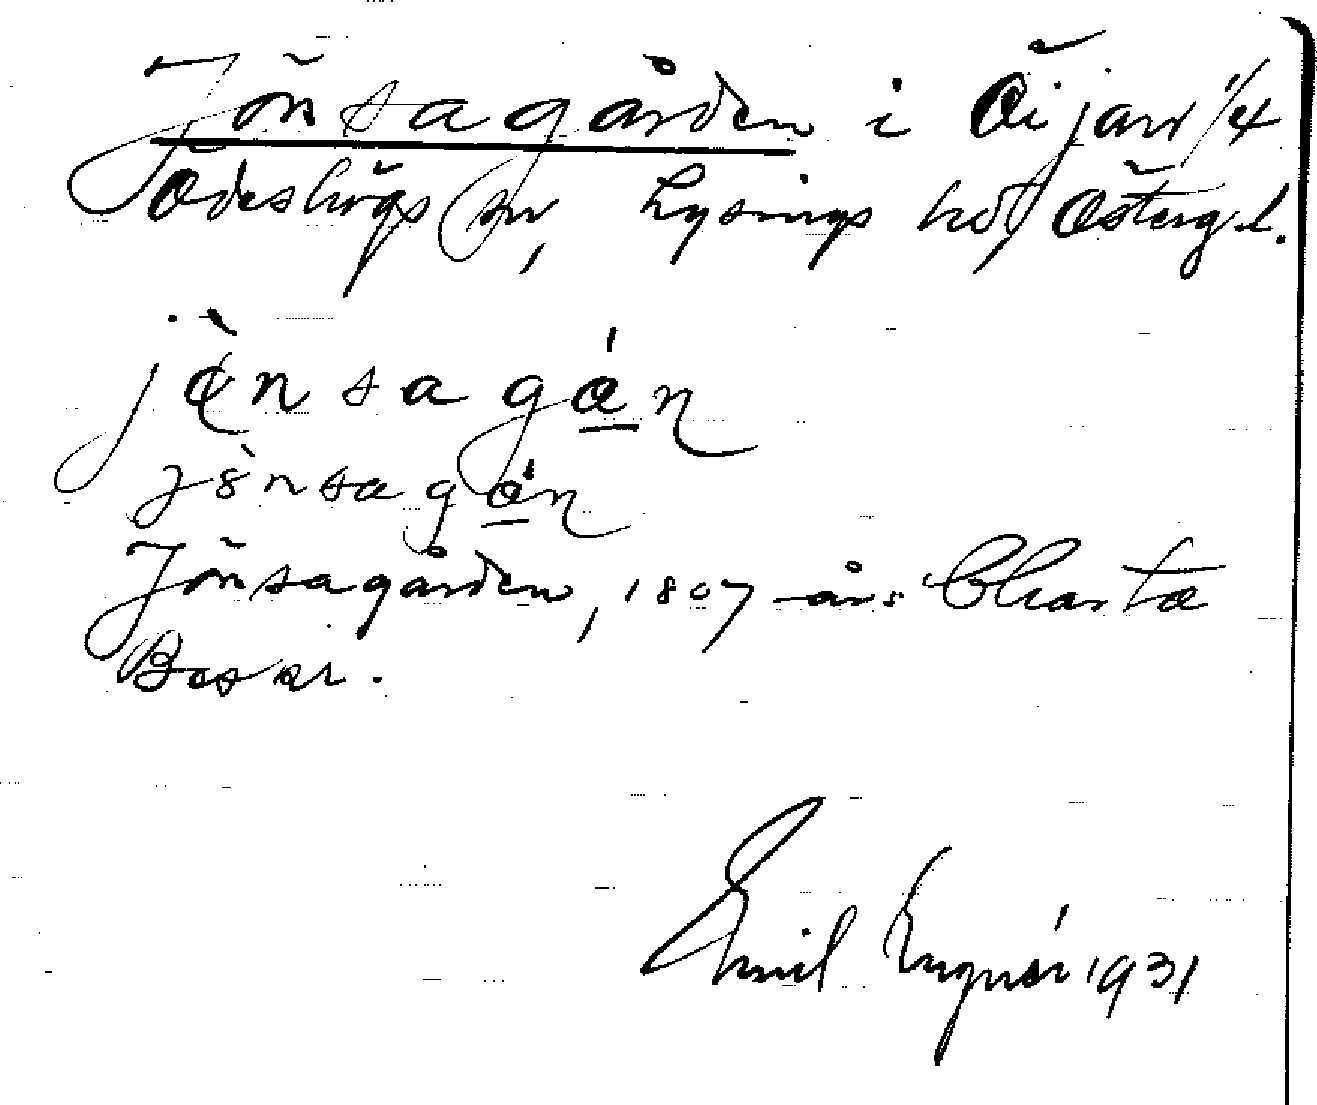 Jönsagården i Öijared 1/4
Ödeshögs sn, Lysings hd, Östergl.
jènsagán
jènsagán
Jönsagården, 1807 års Charta
Beskr.
Emil 1931